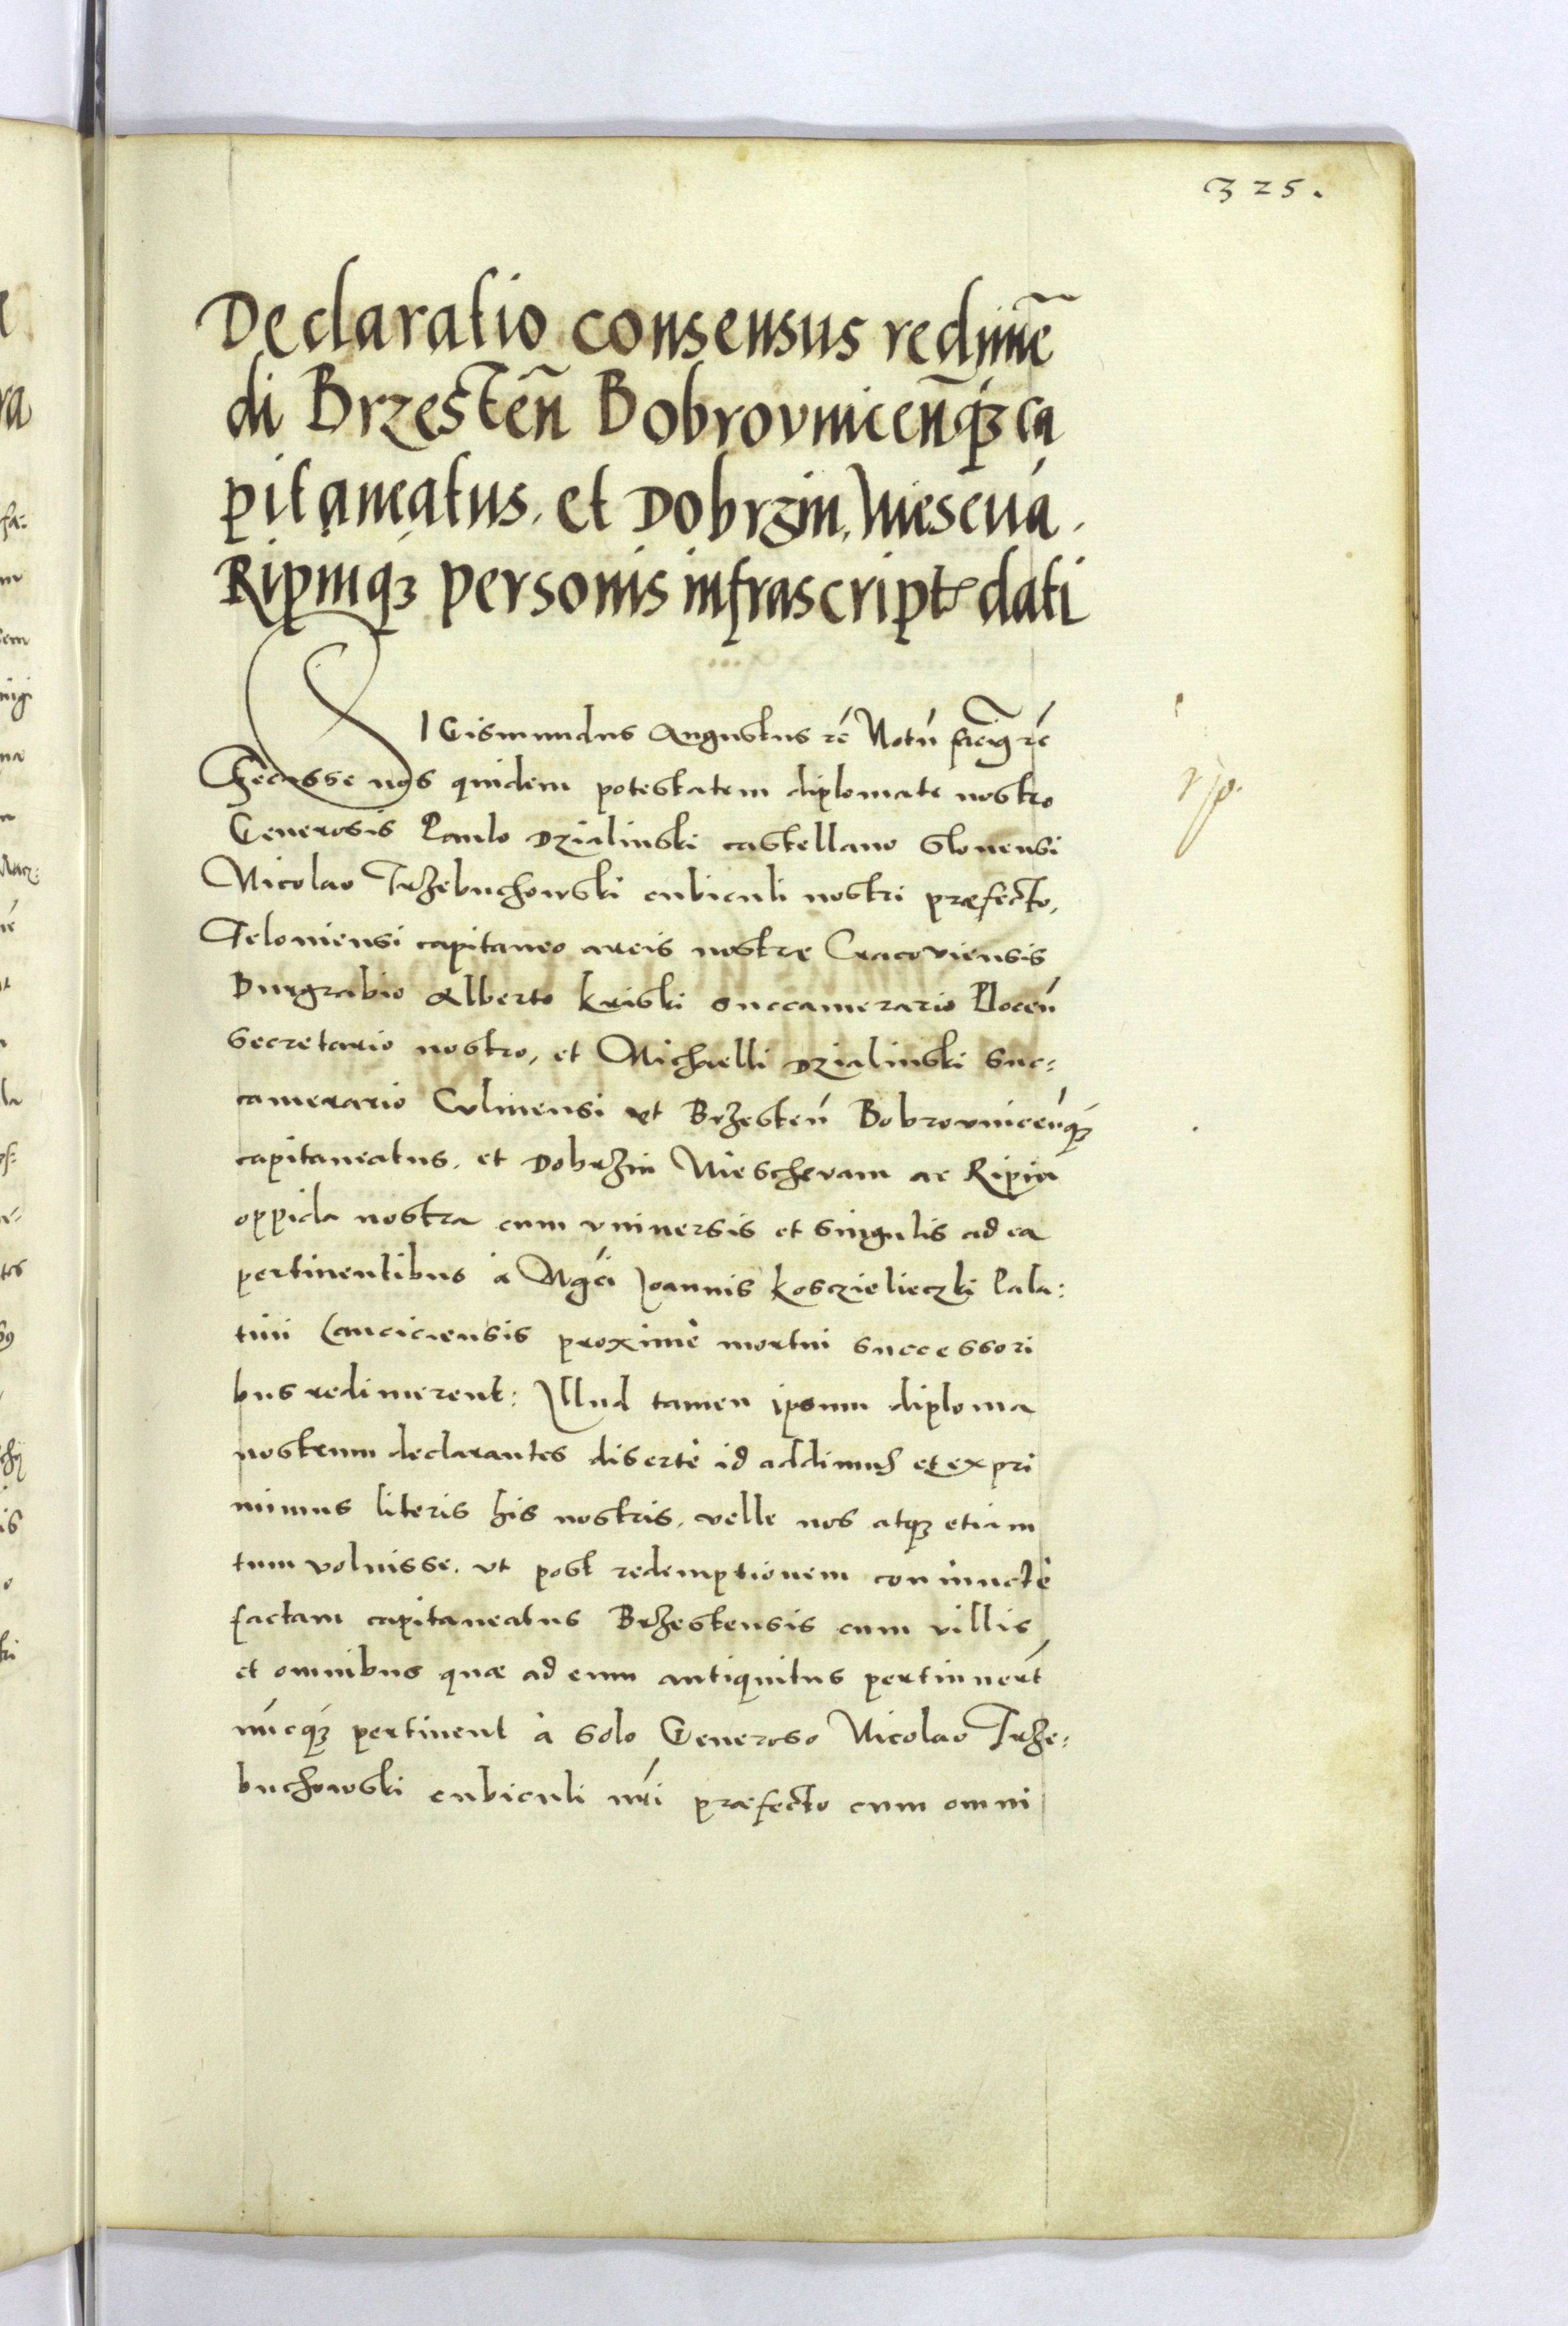 325.
Declaratio consensus redimē
di Brzesteñ Bobrovniceñqȝ ca
pitaneatus. et Dobrzin, Niesevá.
Ripinqȝ personis infrascript. dati
SIGismundus Augustus rē Notū facīꝯ rē
Fecisse nos quidem potestatem diplomate nostro
Generosis Paulo Dzialinski castellano Slonensi
Nicolao Trzebuchowski cubiculi nostri præfecto,
Feloniensi capitaneo arcis nostre Cracoviensis
Burgrabio Alberto Kriski succamerarioPloceñ
Secretario nostro, et Michaelli Dzialinski suc-
camerario Culmensi ut Brzesteñ Bobrovniceñqȝ
capitaneatus. et Dobrzin Niescheuam ac Ripin
oppida nostra cum vniuersis et singulis ad ea
pertinentibus à Mgci Joannis Kosczielieczki Pala:
tini Lanciciensis proximè mortui successori
bus redimerent: Illud tamen ipsum diploma
nostrum declarantes disertè id addimus et expri
mimus literis his nostris. velle nos atqȝ etiam
tum voluisse. vt post redemptionem coniunctè
factam capitaneatus Brzestensis cum villis
et omnibus quæ ad eum antiquitus pertinuerūt
nūcqȝ pertinent à solo Generoso Nicolao Trze-
buchowski cubiculi nri præfecto cum omni